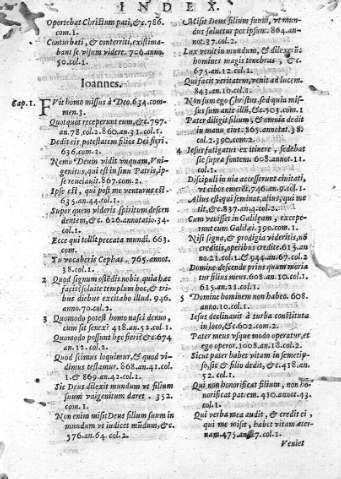 INDEX.
Oportebat Christum pati, &c. 786.
com. 1.
Conturbati, & conterriti, existima-
bant se visum videre. 709. anno.
50. col. 1.
Ioannes.
Cap. 1. Fuit homo missus à Deo. 634. com-
men. 3.
Quotquot receperunt eum, &c. 797.
an. 78. col. 2. 860. an. 31. col. 1.
Dedit eis potestatem filios Dei fieri.
636. com. 1.
Nemo Deum vidit vnquam, Vni-
genitus, qui est in sinu Patris, ip-
se reuelauit. 867. com. 2.
Ipse est, qui post me venturus est.
635. an. 44. col. 1.
Super quem videris spiritum descen
dentem, &c. 626. annotatio. 34.
col. 1.
Ecce qui tollit peccata mundi. 663.
com.
Tu vocaberis Cephas. 765. annot.
38. col. 1.
2 Quod signum ostendis nobis, quia hæc
facis? soluite templum hoc, & tri-
bus diebus excitabo illud. 946.
anno. 70. col. 2.
3 Quomodo potest homo nasci denuo,
cum sit senex? 418. an. 52. col. 1.
Quomodo possunt hæc fieri? & c. 674
an. 12. col. 2.
Quod scimus loquimur, & quod vi-
dimus testamur. 668. an. 41. col.
1. & 869. an. 42. col. 1.
Sic Deus dilexit mundum vt filium
suum vnigenitum daret. 352.
com. 1.
Non enim misit Deus filium suum in
mundum vt iudicet mundum, & c.
576. an. 64. col. 2.
Misit Deus filium suum, vt mun-
dus saluetur per ipsum. 864. an-
no. 37. col. 2.
Lux venit in mundum, & dilexerunt
homines magis tenebras, &
c. 675. an. 12. col. 2.
Qui facit veritatem, venit ad lucem.
843. an. 10. col. 1.
Non sum ego Christus, sed quia mis-
sus sum ante illũ, & c. 503. com. 1.
Pater diligit filium, & omnia dedit
in manu eius. 865. annotat. 38.
col. 2. 390. com. 2.
4 Iesus fatigatus ex itinere, sedebat
sic supra fontem. 608. annot. 11.
col. 1.
Discipuli in via accesserunt ciuitati,
vt cibos emerẽt. 746. an. 9. col. 1.
Alius est qui seminat, alius, qui me
tit, & c. 837. an. 44. col. 2.
Cum venisset in Galilæam, excepe-
runt eum Galilæi. 390. com. 1.
Nisi signa, & prodigia videritis, nõ
creditis, operibus credite. 613. an.
no. 21. col. 1. & 944. an. 67. col. 2
Domine descende prius quam moria
tur filius meus. 608. an. 10. col. 1.
615. an. 21. col. 1.
5 Domine hominem non habeo. 608.
anno. 10. col. 1.
Iesus declinauit à turba constituta
in loco, & c. 602. com. 2.
Pater meus vsque modo operatur, et
ego operor. 1008. an. 18. col. 2.
Sicut pater habet vitam in semetip-
so, sic & filio dedit, & c. 418. an.
52. col. 1.
Qui non honorificat filium, non ho
norificat patrem. 410. annot. 43.
col. 1.
Qui verba mea audit, & credit ei,
qui me misit, habet vitam æter-
nam. 475. an. 7. col. 1.
Veniet